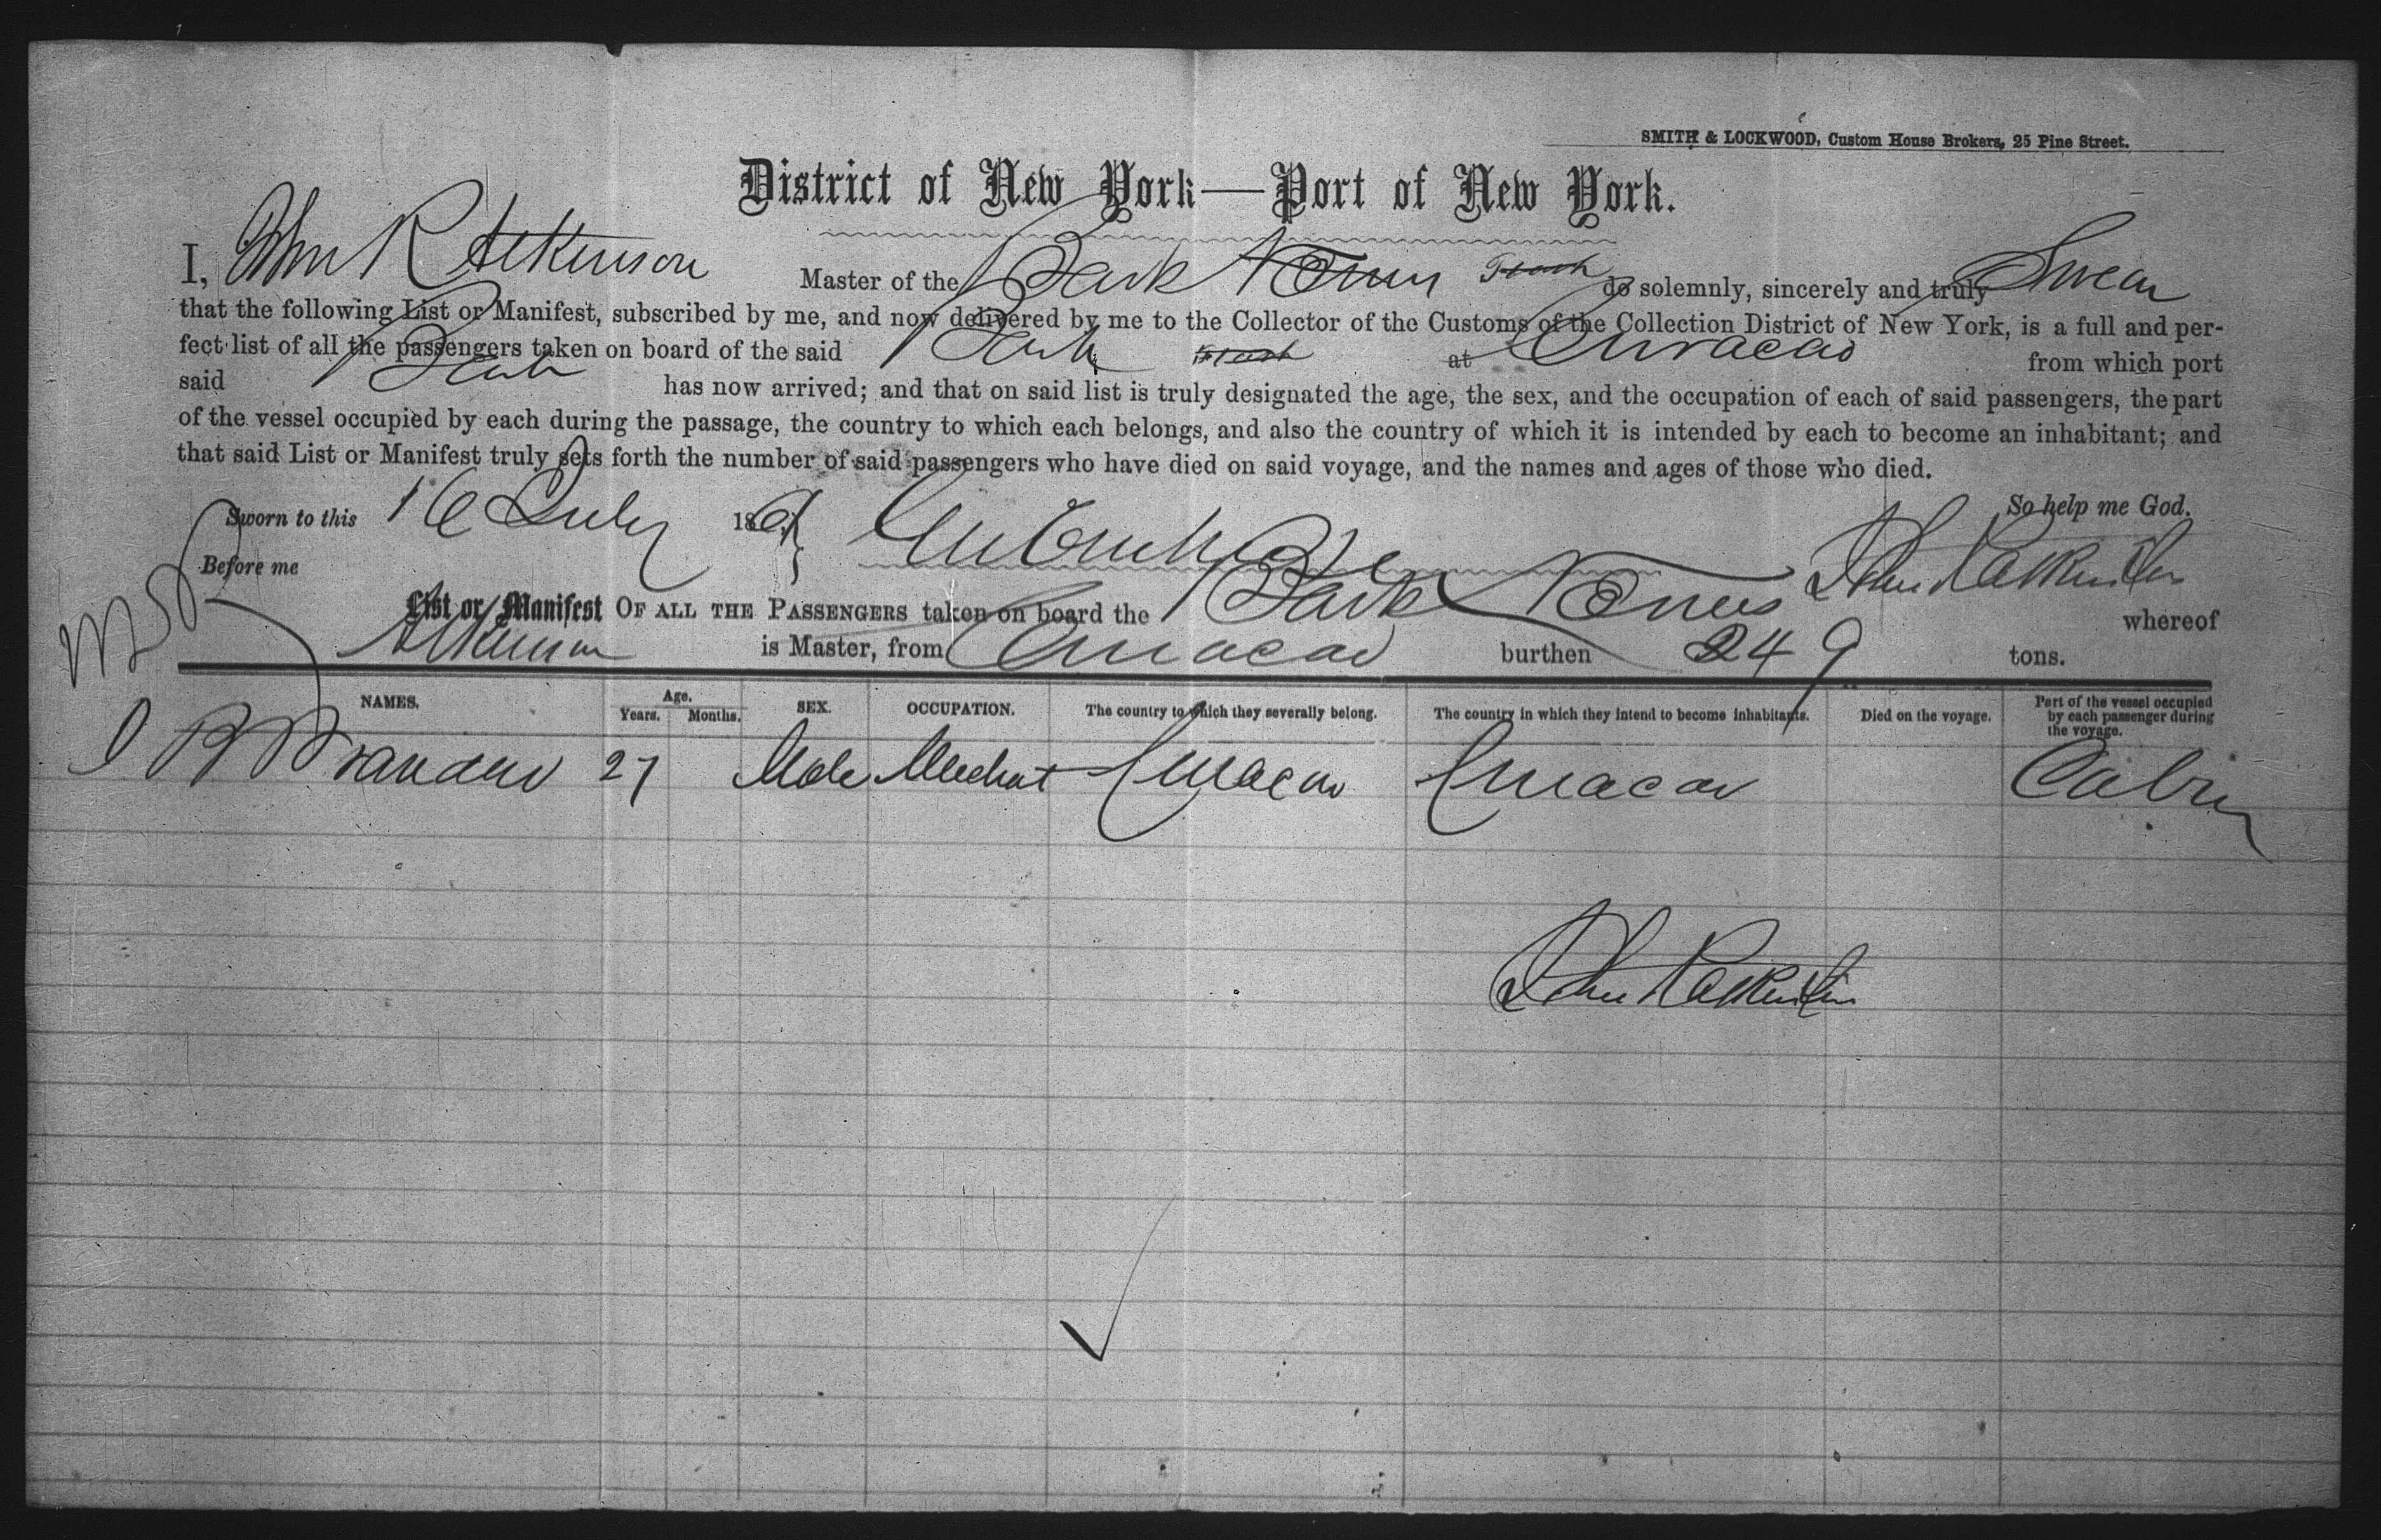 SMITH & LOCKWOOD, Custom House Brokers, 25 Pine Street.
District of New York—Port of New York.
I, John R Atkinson Master of the Bark do solemnly, sincerely and truly Swear
that the following List or Manifest, subscribed by me, and now delivered by me to the Collector of the Customs of the Collection District of New York, is a full and per-
fect list of all the passengers taken on board of the said Bark at Curacao from which port
said Bark has now arrived; and that on said list is truly designated the age, the sex, and the occupation of each of said passengers, the part
of the vessel occupied by each during the passage, the country to which each belongs, and also the country of which it is intended by each to become an inhabitant; and
that said List or Manifest truly sets forth the number of said passengers who have died on said voyage, and the names and ages of those who died.
So help me God.
Sworn to this 16 July 186
Before me John R Atkinson
List or Manifest OF ALL THE PASSENGERS taken on board the Bark whereof
Atkinson is Master, from Curacao burthen 249 tons.
NAMES. Age. Years. Months. SEX. OCCUPATION. The country to which they severally belong. The country in which they intend to become inhabitants. Died on the voyage. Part of the vessel occupied by each passenger during the voyage.
Brandao 27 Male Mechant Curacao Curacao Cabin
John R Atkinson